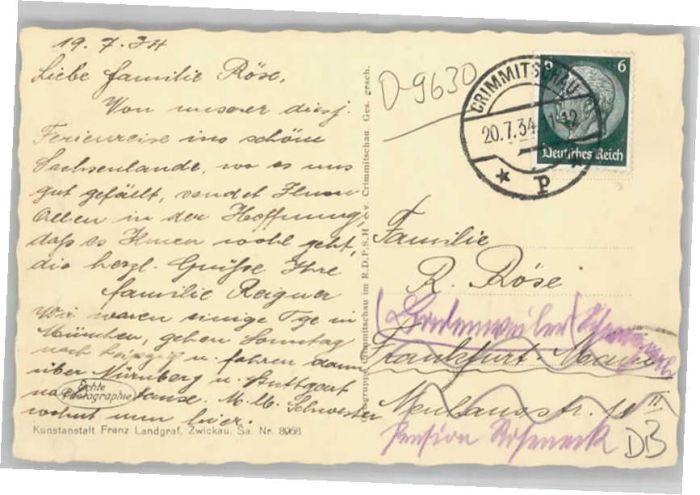 19.7.34
Liebe Familie Röse,
Von unserer diesj.
Ferienreise ins schöne
Sachsenlande, wo es uns
gut gefällt, sendet Ihnen
Allen in der Hoffnung,
daß es Ihnen wohl geht,
die herzl. Grüße Ihre
Familie Reigner
Wir waren einige Tge in
München, gehen Sonntag
nach Leipzig u. fahren dann
über Nürnberg u. Stuttgart
nach Hause. M. lb. Schwester
wohnt nun hier.
Echte
Photographie
Kunstanstalt Franz Landgraf, Zwickau, Sa. Nr. 8968
Crimmitschau im R.D.P.S.H. e.v. Crimmitschau. Ges. gesch.
D-9630
CRIMMITSCHAU
20.7.34
12
* p
6
Deutsches Reich
Familie
R. Röse
(Badenweiler)
Frankfurt-Main
Neuhausstr. 11 III
Pension Roseneck
DB